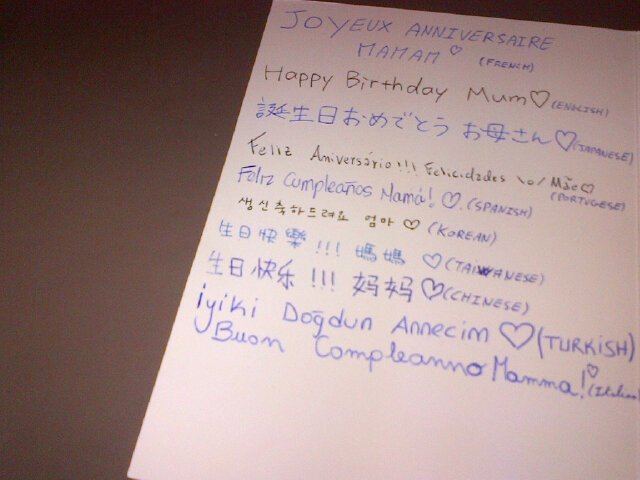 JOYEUX ANNIVERSAIRE
MAMAM ♡ (FRENCH)
Happy Birthday Mum ♡ (ENGLISH)
誕生日おめでとう お母さん ♡ (JAPANESE)
Feliz Aniversário!!! Felicidades \o/ Mãe ♡
(PORTUGESE)
Feliz Cumpleaños Mamá! ♡. (SPANISH)
생신축하드려요 엄마 ♡ (KOREAN)
生日快樂!!! 媽媽 ♡ (TAIWANESE)
生日快乐!!! 妈妈 ♡ (CHINESE)
iyiki Doğdun Annecim ♡ (TURKISH)
Buon Compleanno Mamma! ♡ (Italian)